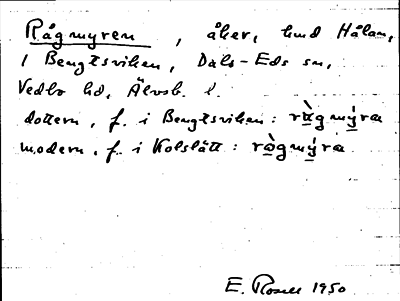 Rågmyren, åker, hmd Hålan,
i Bengtsviken, Dals-Eds sn,
Vedbo hd, Älvsb. l.
dottern, f. i Bengtsviken: ràgmýra
modern, f. i Kolslätt: rògmýra
E. Rosell 1950